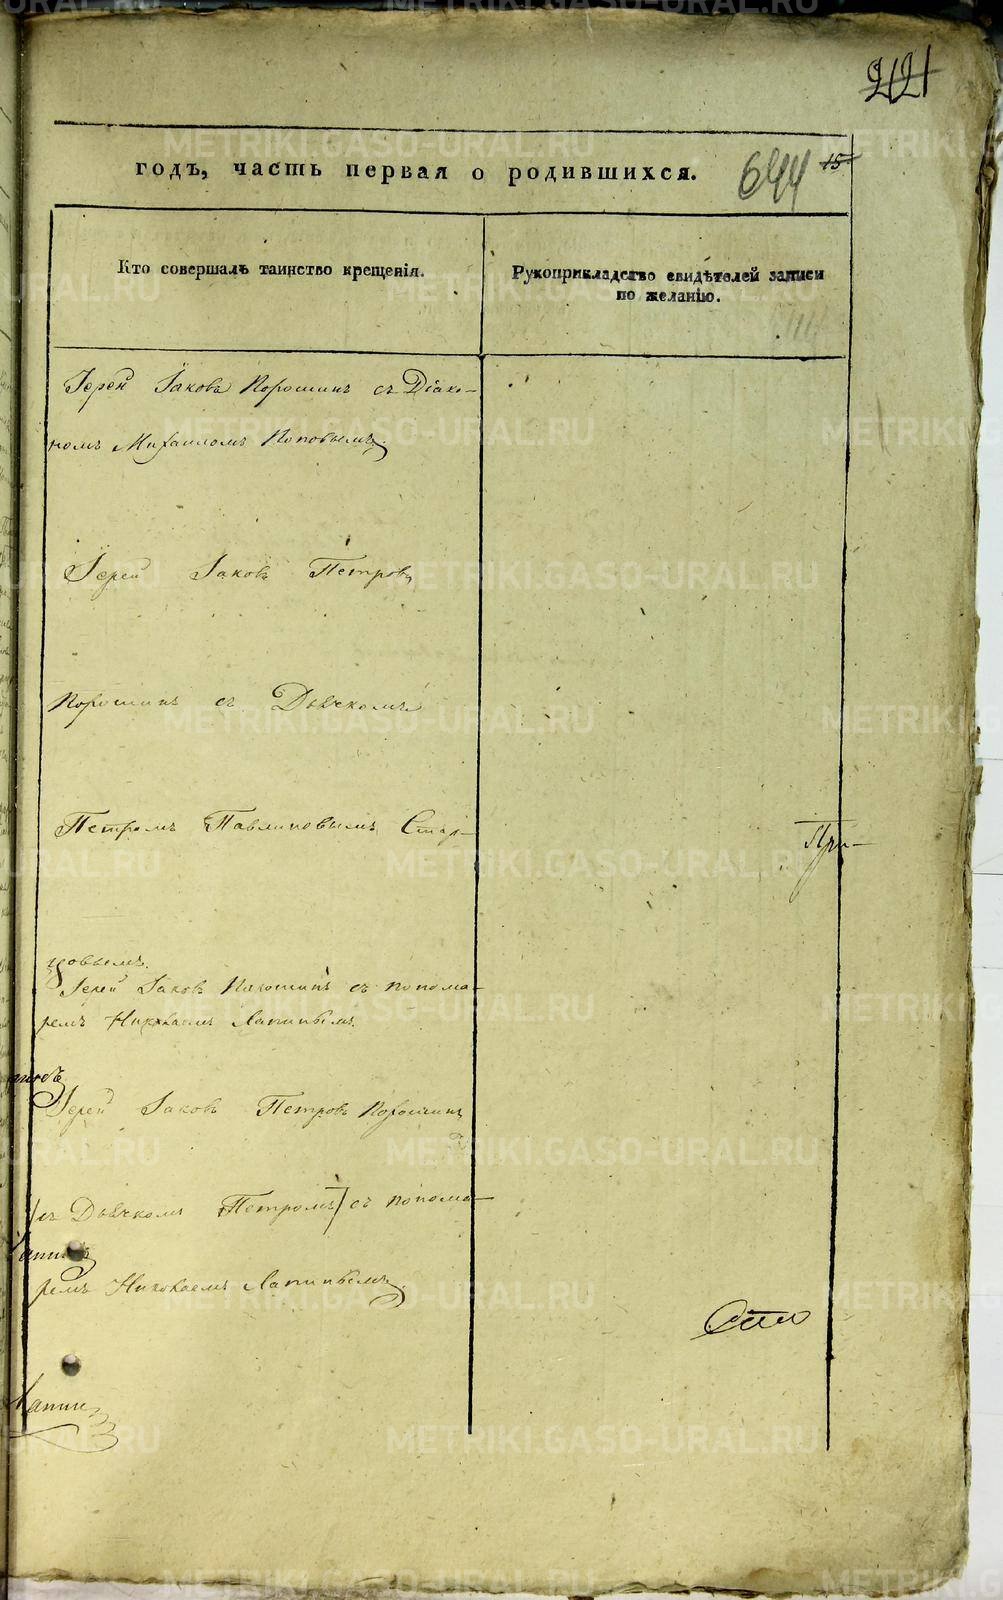 221
годъ, часть первая о родившихся.
644 15
Кто совершалъ таинство крещенія.
Рукоприкладство свидѣтелей записи
по желанію.
Іерей Іаковъ Порошинъ съ Діако-
номъ Михаиломъ Поповымъ.
Іерей Іаковъ Петровъ
Порошинъ съ Дьячкомъ
Петромъ Павлиновымъ Стар-
При-
цовымъ.
Іерей Іаковъ Порошинъ съ понома-
ремъ Николаемъ Лапинымъ.
Іерей Іаковъ Петровъ Порошинъ
(съ Дьячкомъ Петромъ) съ понома-
ремъ Николаемъ Лапинымъ.
Лапин
METRIKI.GASO-URAL.RU